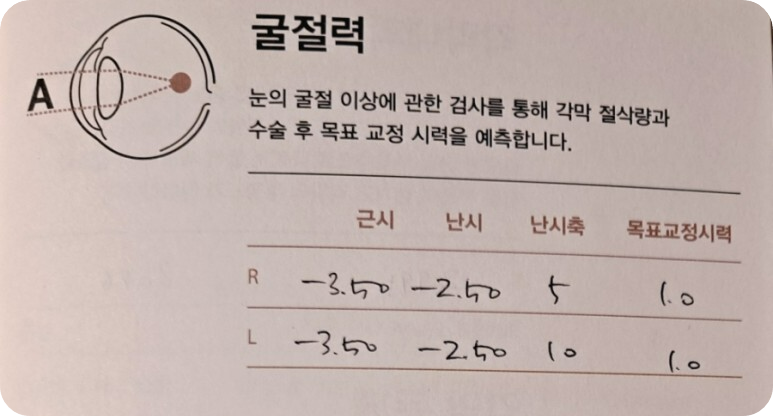 굴절력
A
눈의 굴절 이상에 관한 검사를 통해 각막 절삭량과
수술 후 목표 교정 시력을 예측합니다.
근시 난시 난시축 목표교정시력
R -3.50 -2.50 5 1.0
L -3.50 -2.50 10 1.0